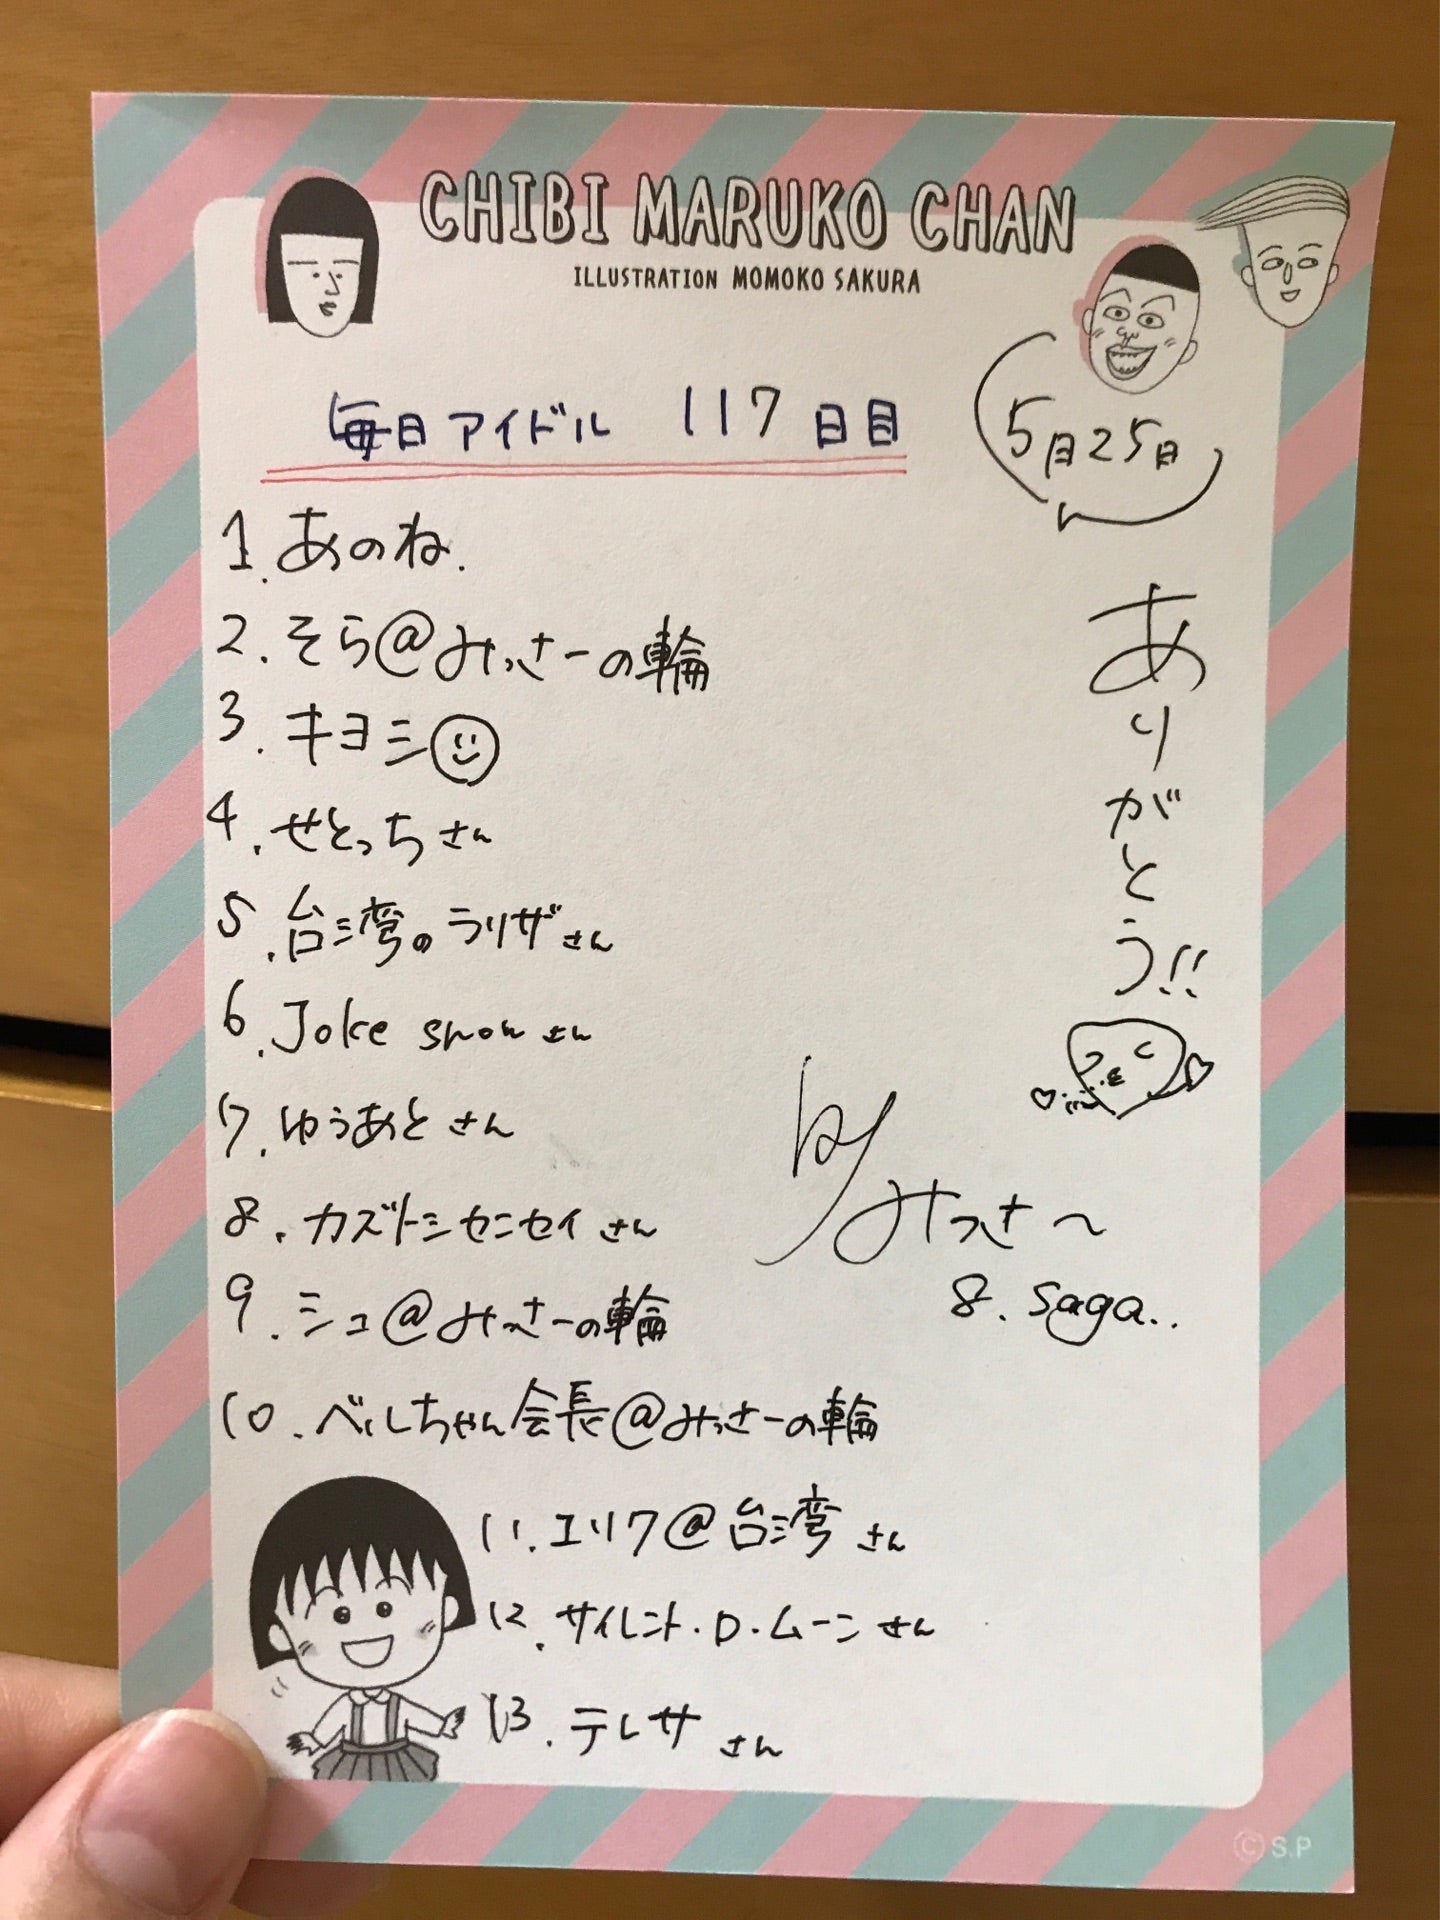 CHIBI MARUKO CHAN
ILLUSTRATION MOMOKO SAKURA
毎日アイドル 117日目
5月25日
1. あのね.
2. そら@みっさーの輪
3. キヨシ
4. せとっちさん
5. 台湾のラリザさん
6. Joke snowさん
7. ゆうあとさん
8. カズトシセンセイさん
9. シュ@みっさーの輪
10. ベルちゃん会長@みっさーの輪
11. エリク@台湾さん
12. サイレント・D・ムーンさん
13. テレサさん
ありがとう!!
by みっさ〜
8. saga..
© S.P